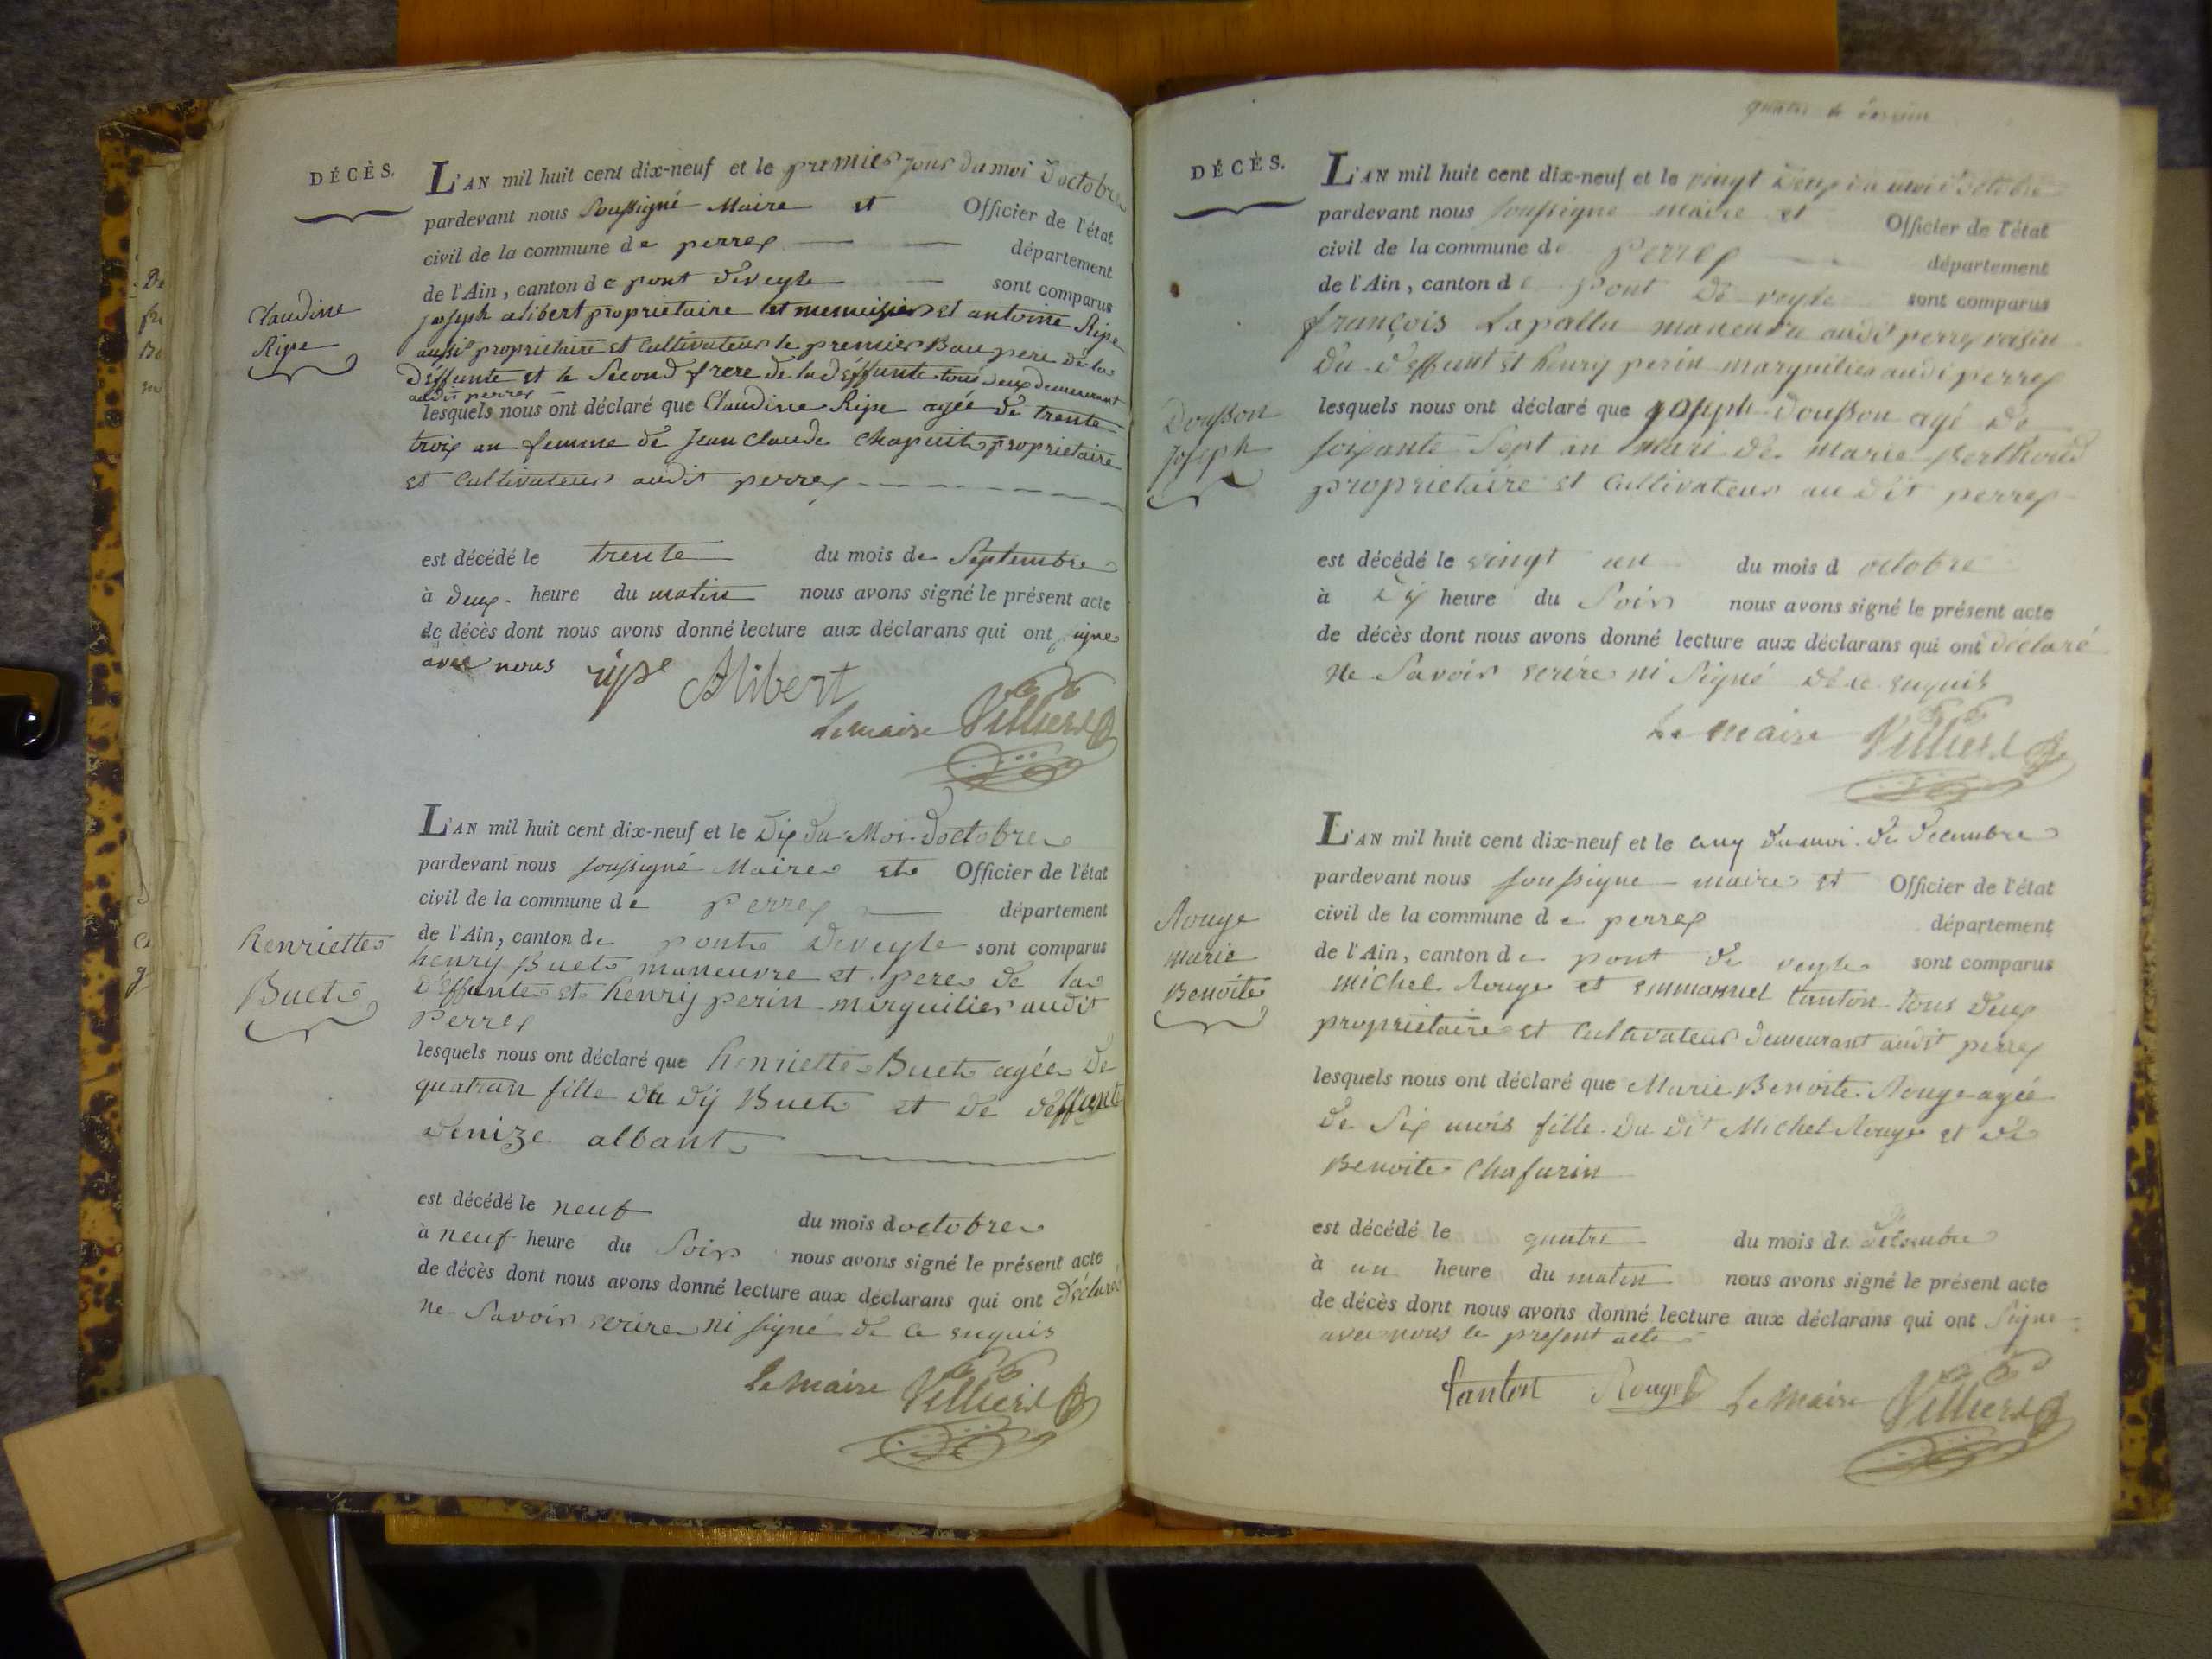 DÉCÈS.
L'AN mil huit cent dix-neuf et le premier jour du moi doctobre
pardevant nous soussigné Maire et Officier de l'état
civil de la commune de perrex département
de l'Ain, canton de pont deveyle sont comparus
joseph alibert proprietaire et menuisier et antoine Ripe
aussi proprietaire et cultivateur le premier Beau pere de la
deffunte et le second frere de la deffunte tous deux demeurant
audit perrex
lesquels nous ont déclaré que Claudine Ripe agée de trente
trois an femme de jean claude chapuit proprietaire
et cultivateur audit perrex
Claudine
Ripe
est décédé le trente du mois de Septembre
à deux heure du matin nous avons signé le présent acte
de décès dont nous avons donné lecture aux déclarans qui ont signe
avec nous ripe Alibert
Le maire Villierd
L'AN mil huit cent dix-neuf et le dix du Moi doctobre
pardevant nous soussigné Maire et Officier de l'état
civil de la commune de perrex département
de l'Ain, canton de pont deveyle sont comparus
henry Buet maneuvre et pere de la
deffunte et henrij perin marguilier audit
Perrex
lesquels nous ont déclaré que henriette Buet agée de
quatran fille du dij Buet et de deffunte
denize albant
henriette
Buet
est décédé le neuf du mois doctobre
à neuf heure du soir nous avons signé le présent acte
de décès dont nous avons donné lecture aux déclarans qui ont déclaré
ne savoir ecrire ni signé de ce enquis
Le Maire Villierd
DÉCÈS.
L'AN mil huit cent dix-neuf et le vingt deux du moi doctobre
pardevant nous soussigne maire et Officier de l'état
civil de la commune de perrex département
de l'Ain, canton de pont de veyle sont comparus
françois Lapallu maneuvre audit perrex voisin
du deffunt et henry perin marguilier audi perrex
lesquels nous ont déclaré que joseph dousson agé de
soixante sept an mari de marie Berthoud
proprietaire et cultivateur au dit perrex
Dousson
joseph
est décédé le vingt un du mois d octobre
à dix heure du soir nous avons signé le présent acte
de décès dont nous avons donné lecture aux déclarans qui ont déclaré
ne savoir ecrire ni signé de ce enquis
Le maire Villierd
L'AN mil huit cent dix-neuf et le cinq du moi de decembre
pardevant nous soussigne maire et Officier de l'état
civil de la commune de perrex département
de l'Ain, canton de pont de veyle sont comparus
michel Rouge et emmanuel tanton tous deux
proprietaire et cultivateur demeurant audit perrex
lesquels nous ont déclaré que Marie Benoite Rouge agée
de six mois fille du dit Michel Rouge et de
Benoite Chafurin
Rouge
marie
Benoite
est décédé le quatre du mois de decembre
à un heure du matin nous avons signé le présent acte
de décès dont nous avons donné lecture aux déclarans qui ont signe
avec nous le present acte
tanton Rouge Le Maire Villierd